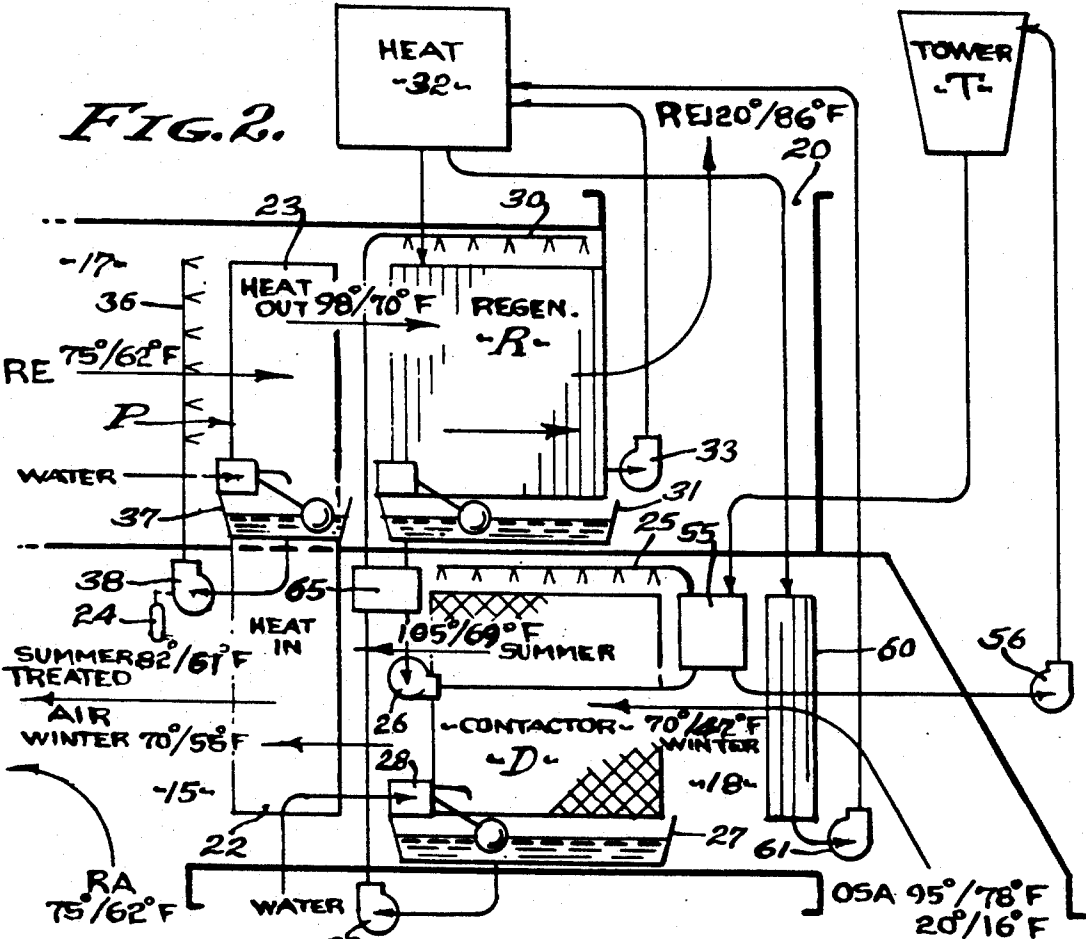 HEAT
-32-
TOWER
-T-
FIG. 2.
REJ 120°/86°F
20
23
30
-17-
36
HEAT
OUT 98°/70°F
REGEN.
-R-
RE 75°/62°F
P
33
WATER
37
31
25
55
38
65
24
HEAT
IN
105°/69°F
SUMMER
60
56
SUMMER 82°/61°F
TREATED
AIR
WINTER 70°/55°F
26
-CONTACTOR-
-D-
70°/47°F
WINTER
28
-15-
-18-
22
27
61
RA
75°/62°F
WATER
OSA 95°/78°F
20°/16°F